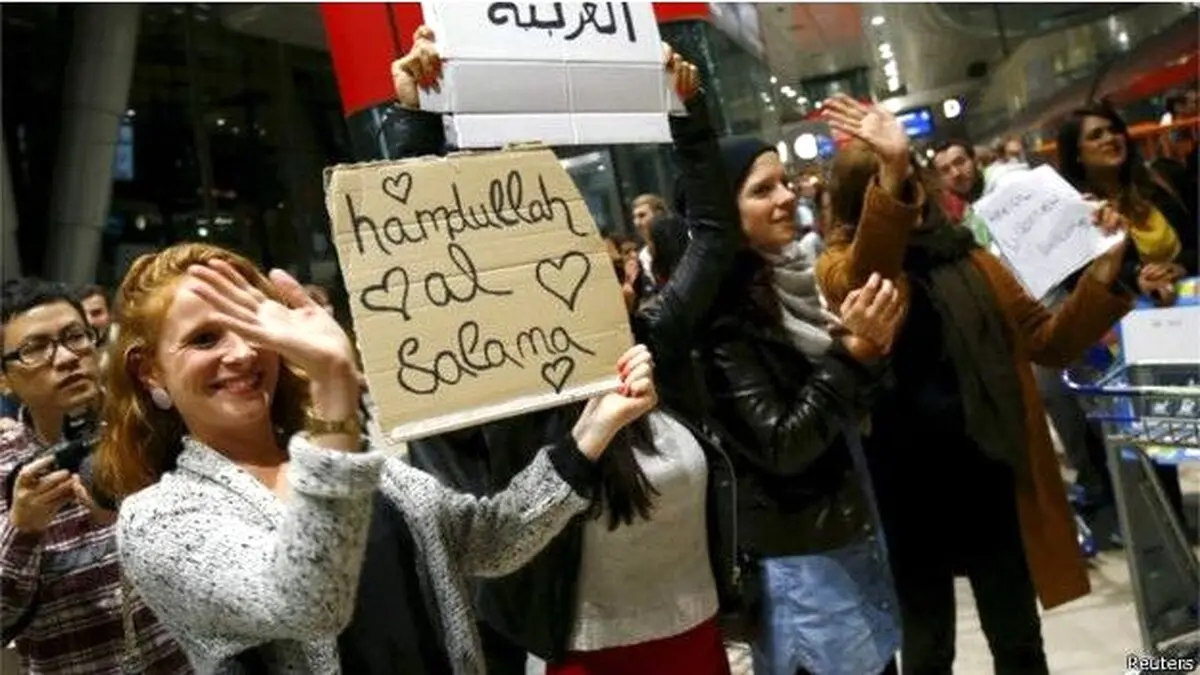 العربية
hamdullah
al
Salama
Reuters